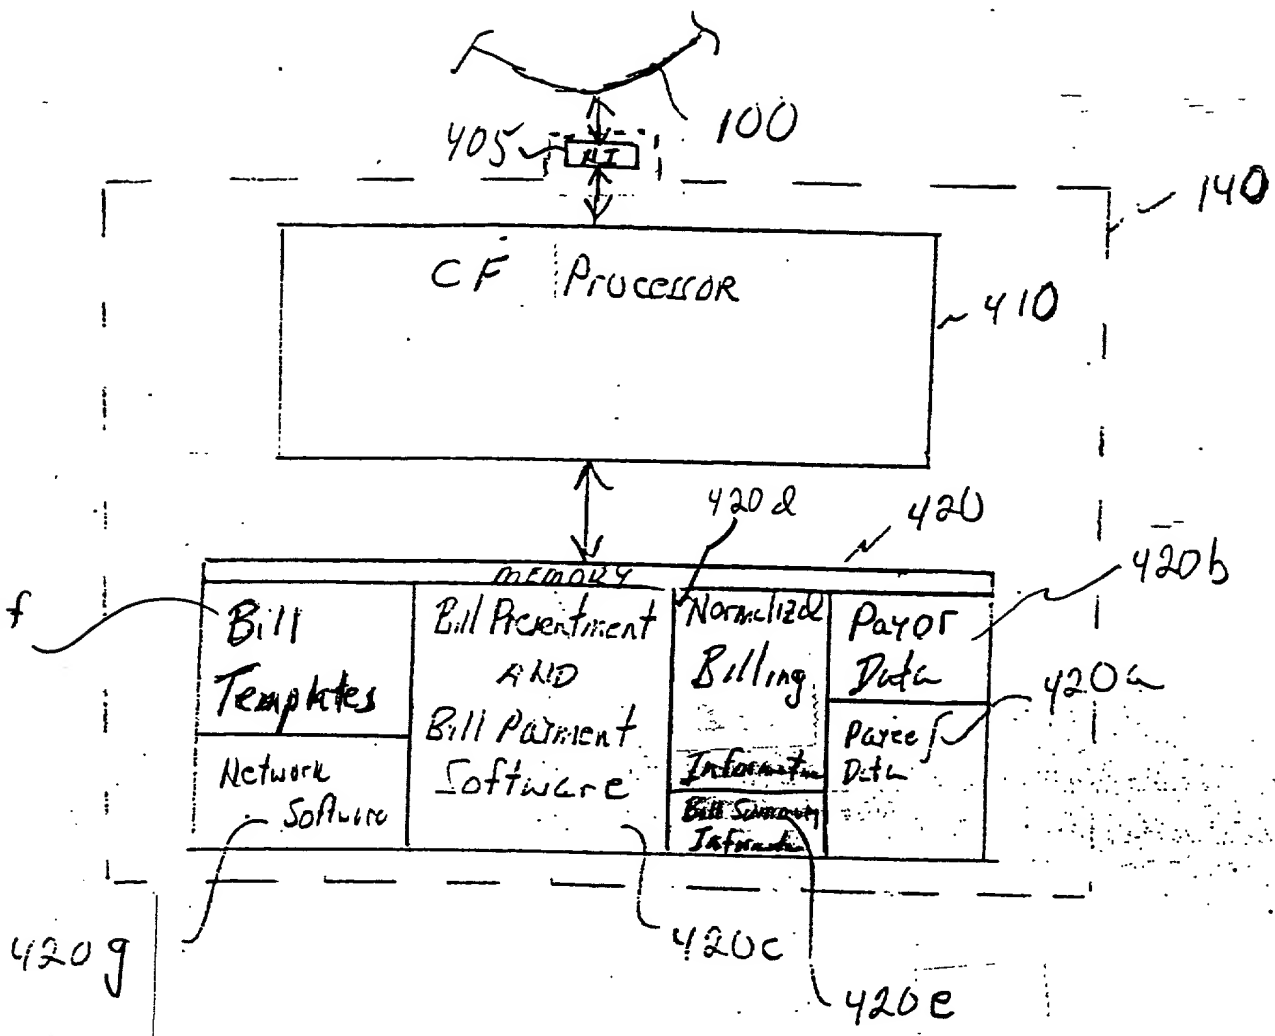 100
405
NI
140
CF Processor
410
420d
420
MEMORY
420b
f
Bill
Templates
Bill Presentment
AND
Bill Payment
Software
Normalized
Billing
Informatn
Payor
Data
420a
Payee
Data
Network
Software
Bill Summary
Informatn
420g
420c
420e